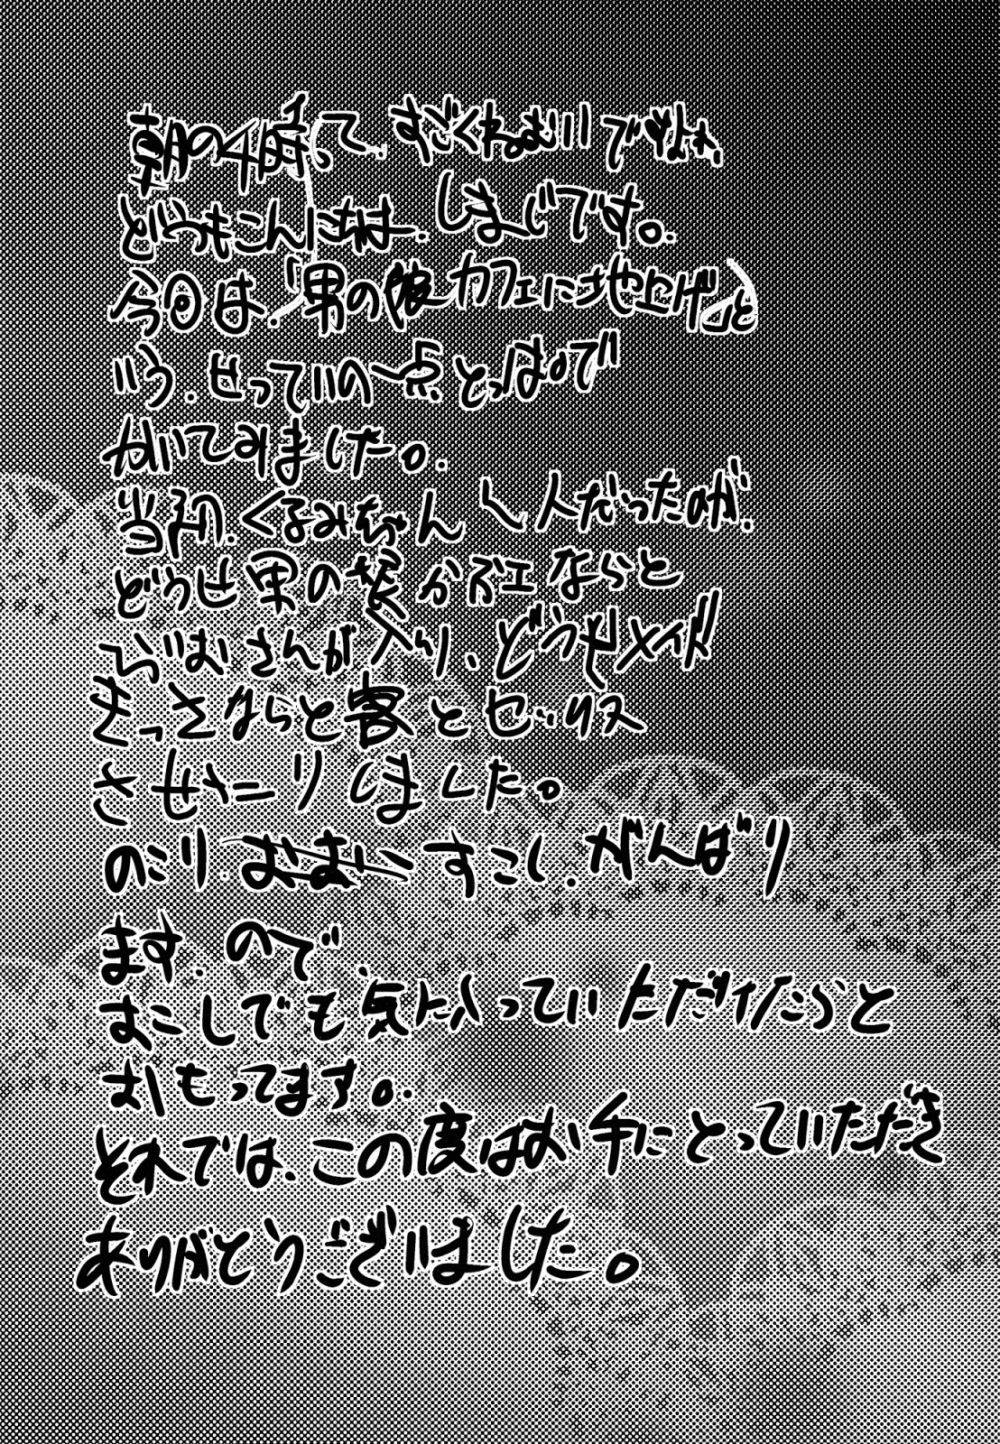 朝の4時って、すごくねむいですね、
どうもこんにちは、しまじです。
今回は、「男の娘カフェに地上げ」と
いう、せっていの一点とっぱで
かいてみました。
当初、くるみちゃん 1人だったのが、
どうせ男の娘かふェならと
おさんが入り、どうせメイド
きっさならと客とセックス
させたりしました。
のこり すこし、がんばり
ます、ので、
すこしでも気に入っていただイたらと
おもってます。
それでは、この度はお手にとっていただき
ありがとうございました。